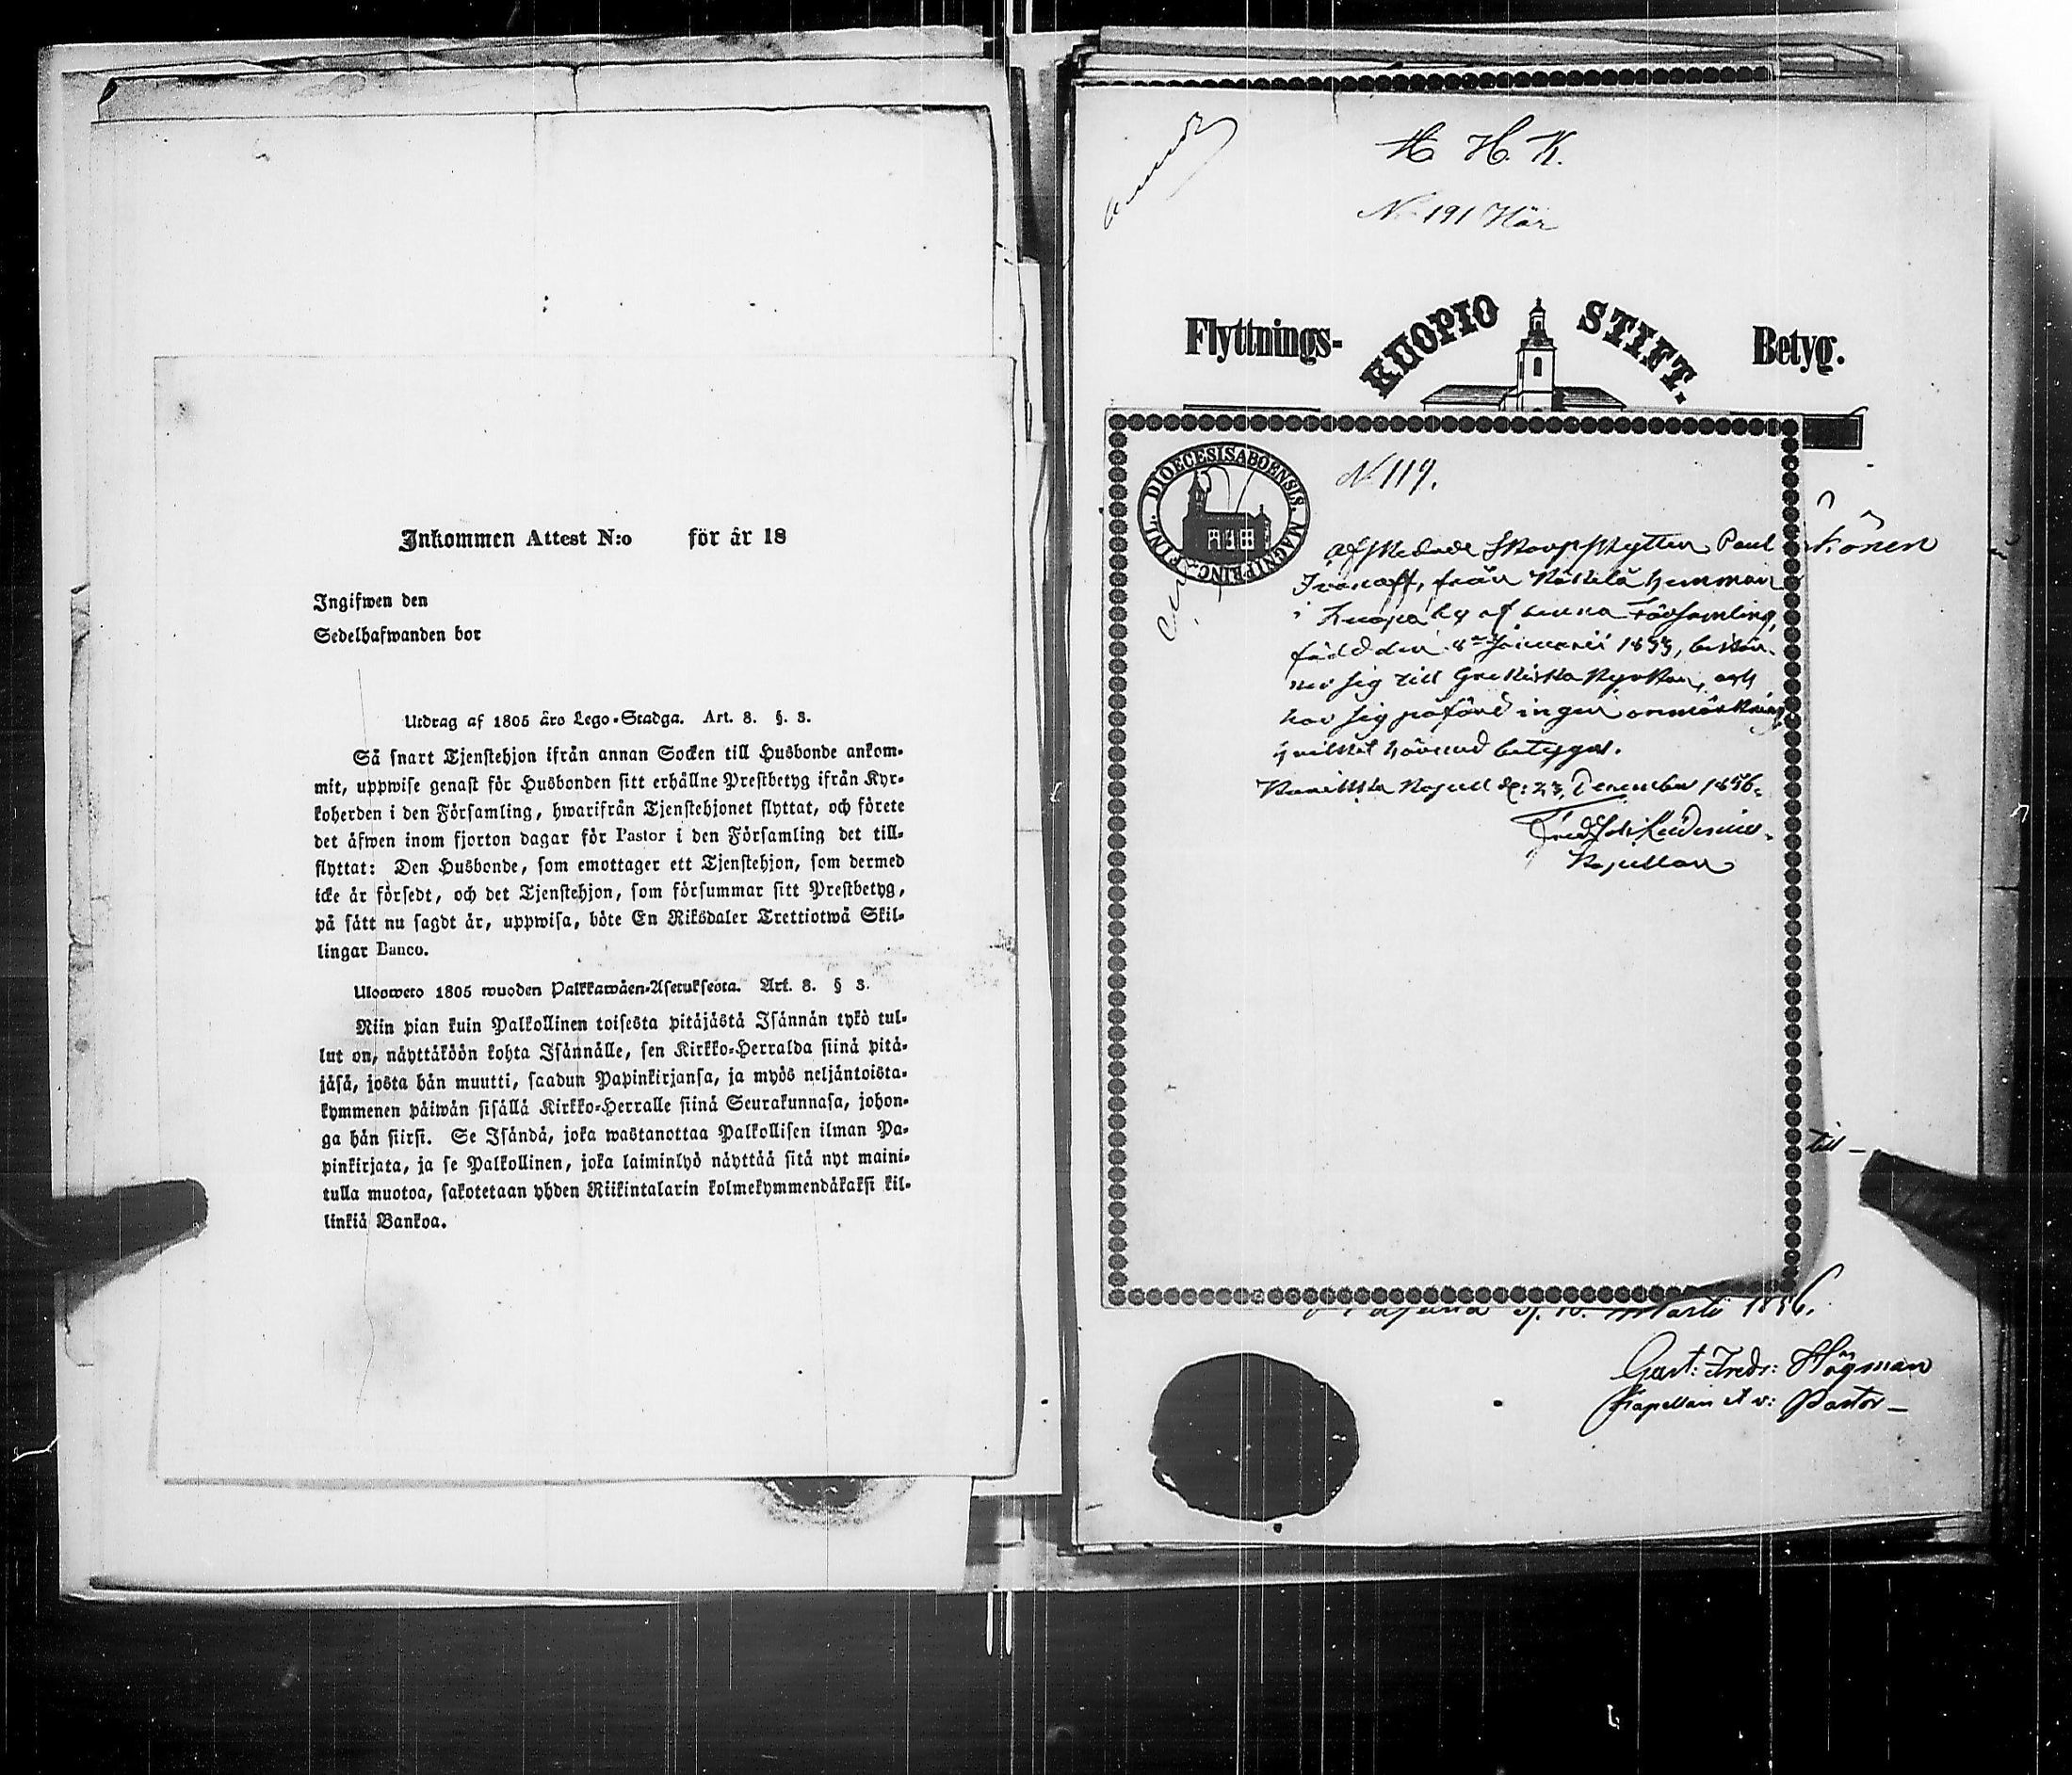 Inkommen Attest N:o för år 18
Ingifwen den
Sedelhafwanden bor
Utdrag af 1805 års Lego-Stadga. Art. 8. §. 3.
Så snart Tjenstehjon ifrån annan Socken till Husbonde ankom-
mit, uppwise genast för Husbonden sitt erhållne Prestbetyg ifrån Kyr-
koherden i den Församling, hwarifrån Tjenstehjonet flyttat, och förete
det äfwen inom fjorton dagar för Pastor i den Församling det till-
flyttat: Den Husbonde, som emottager ett Tjenstehjon, som dermed
icke är försedt, och det Tjenstehjon, som försummar sitt Prestbetyg,
på sätt nu sagdt är, uppwisa, böte En Riksdaler Trettiotwå Skil-
lingar Banco.
Ulosweto 1805 wuoden Palkkawäen-Asetuksesta. Art. 8. § 3.
Niin pian kuin Palkollinen toisesta pitäjästä Isännän tykö tul-
lut on, näyttäköön kohta Isännälle, sen Kirkko-Herralda siinä pitä-
jäsä, josta hän muutti, saadun Papinkirjansa, ja myös neljäntoista-
kymmenen päiwän sisällä Kirkko-Herralle siinä Seurakunnasa, johon-
ga hän siirsi. Se Isändä, joka wastanottaa Palkollisen ilman Pa-
pinkirjata, ja se Palkollinen, joka laiminlyö näyttää sitä nyt maini-
tulla muotoa, sakotetaan yhden Riikintalarin kolmekymmendäkaksi kil-
linkiä Bankoa.
H. K.
N 191 Här
Flyttnings- KUOPIO STIFT. Betyg.
DIOECESIS ABOENSIS MAGNI PRINC. FINL.
N 119.
Afskedade Skarpskytten Paul
Ivanoff, från hemman
i by af denna Församling,
född den 8de Januarii 1833, bekän-
ner sig till Grekiska Kyrkan, och
har sig påförd ingen anmärkning
hvilket härmed betygas.
Kapell d: 23 December 1856.
Kapellan
till -
Marti 1856.
Gust: Fredr: Högman
Kapellan et v: Pastor -